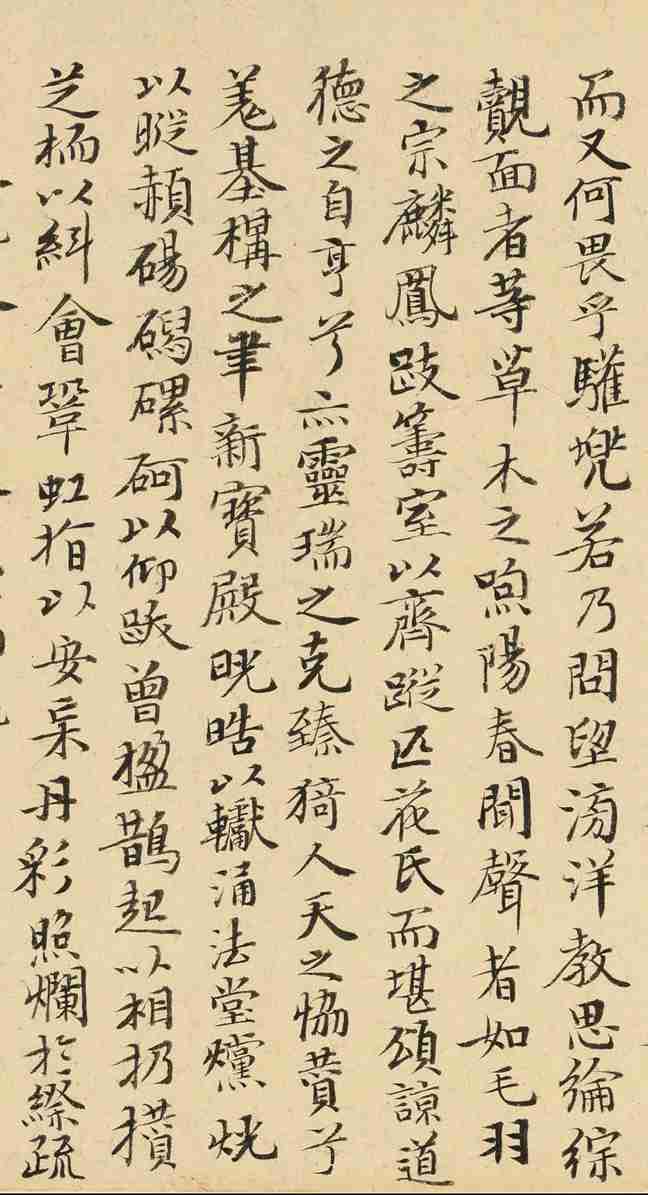 而又何畏乎驩兠若乃問望滂洋教思綸綜
覿面者等草木之喣陽春聞聲者如毛羽
之宗麟鳳跂籌室以齊蹤匹花氏而堪頌諒道
德之自亨兮亦靈瑞之克臻猗人天之協贊兮
羌基構之聿新寶殿晄晧以轞涌法堂爣烡
以暰赬碭磶磥砢以仰蹴曾楹鵲起以相扔橫
芝栭以糾會鞏虹指以安杗丹彩照爛於繆疏